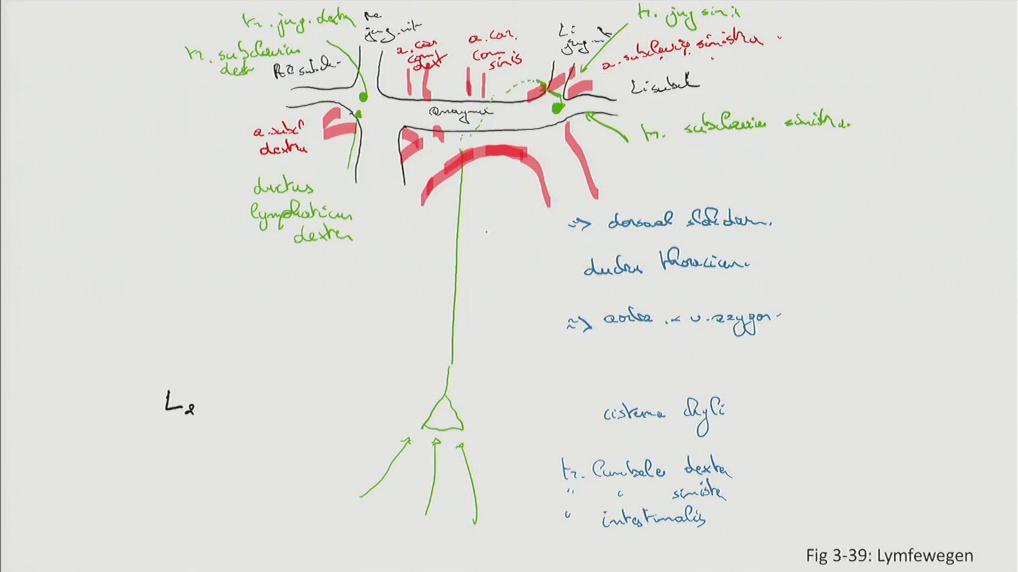 tr. jug. dextr
tr. subclavius
dex
Re
jug. int
Re subcl.
a. car
com
dext
a. car.
com
sinis
Li
jug. int
tr. jug sini
a. subclavia sinistra
Li subcl
tr. subclavius sinistra.
a. subcl
dextra
ductus
lymphaticus
dexter
=> dorsaal slokdarm.
ductus thoracicus.
=> aorta < v. azygos.
L2
cisterna chyli
tr. lumbale dextra
" " sinistra
" intestinalis
Fig 3-39: Lymfewegen